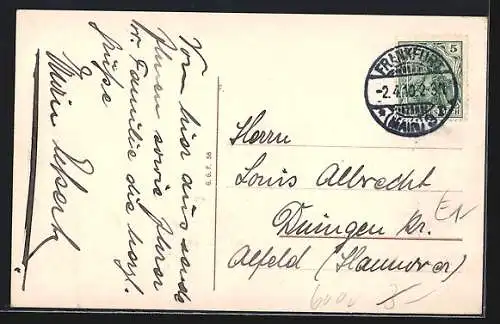 Von hier aus sende
Ihnen sowie Ihrer
w. Familie die herzl.
Grüße
6. 6. F. 56
FRANKFURT
-2.4.10.2-3N
(MAIN)
5
Herrn
Louis Albrecht
Duingen Kr.
Alfeld (Hannover)
E1
3-